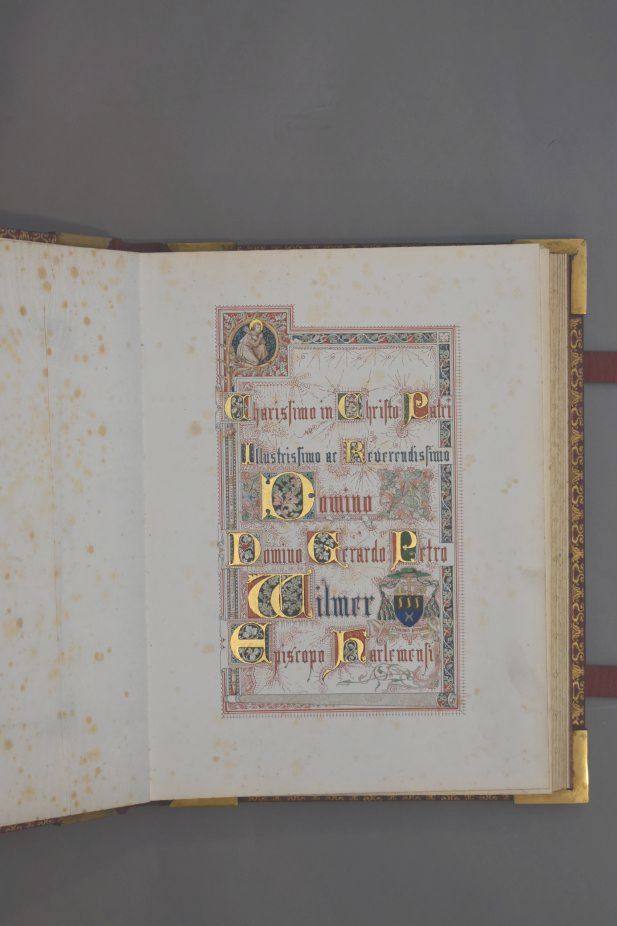 Charissimo in Christo Patri
Illustrissimo ac Reverendissimo
Domino
Domino Gerardo Petro
Wilmer
Episcopo Harlemensi